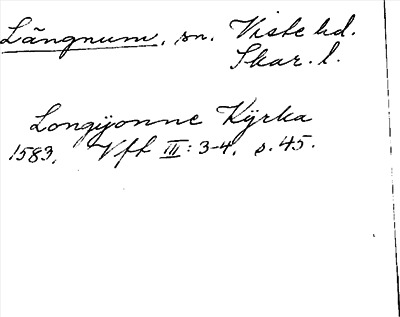 Långnum, sn. Viste hd.
Skar. l.
Longÿonne Kÿrka
1583. Vft III: 3-4, s. 45.